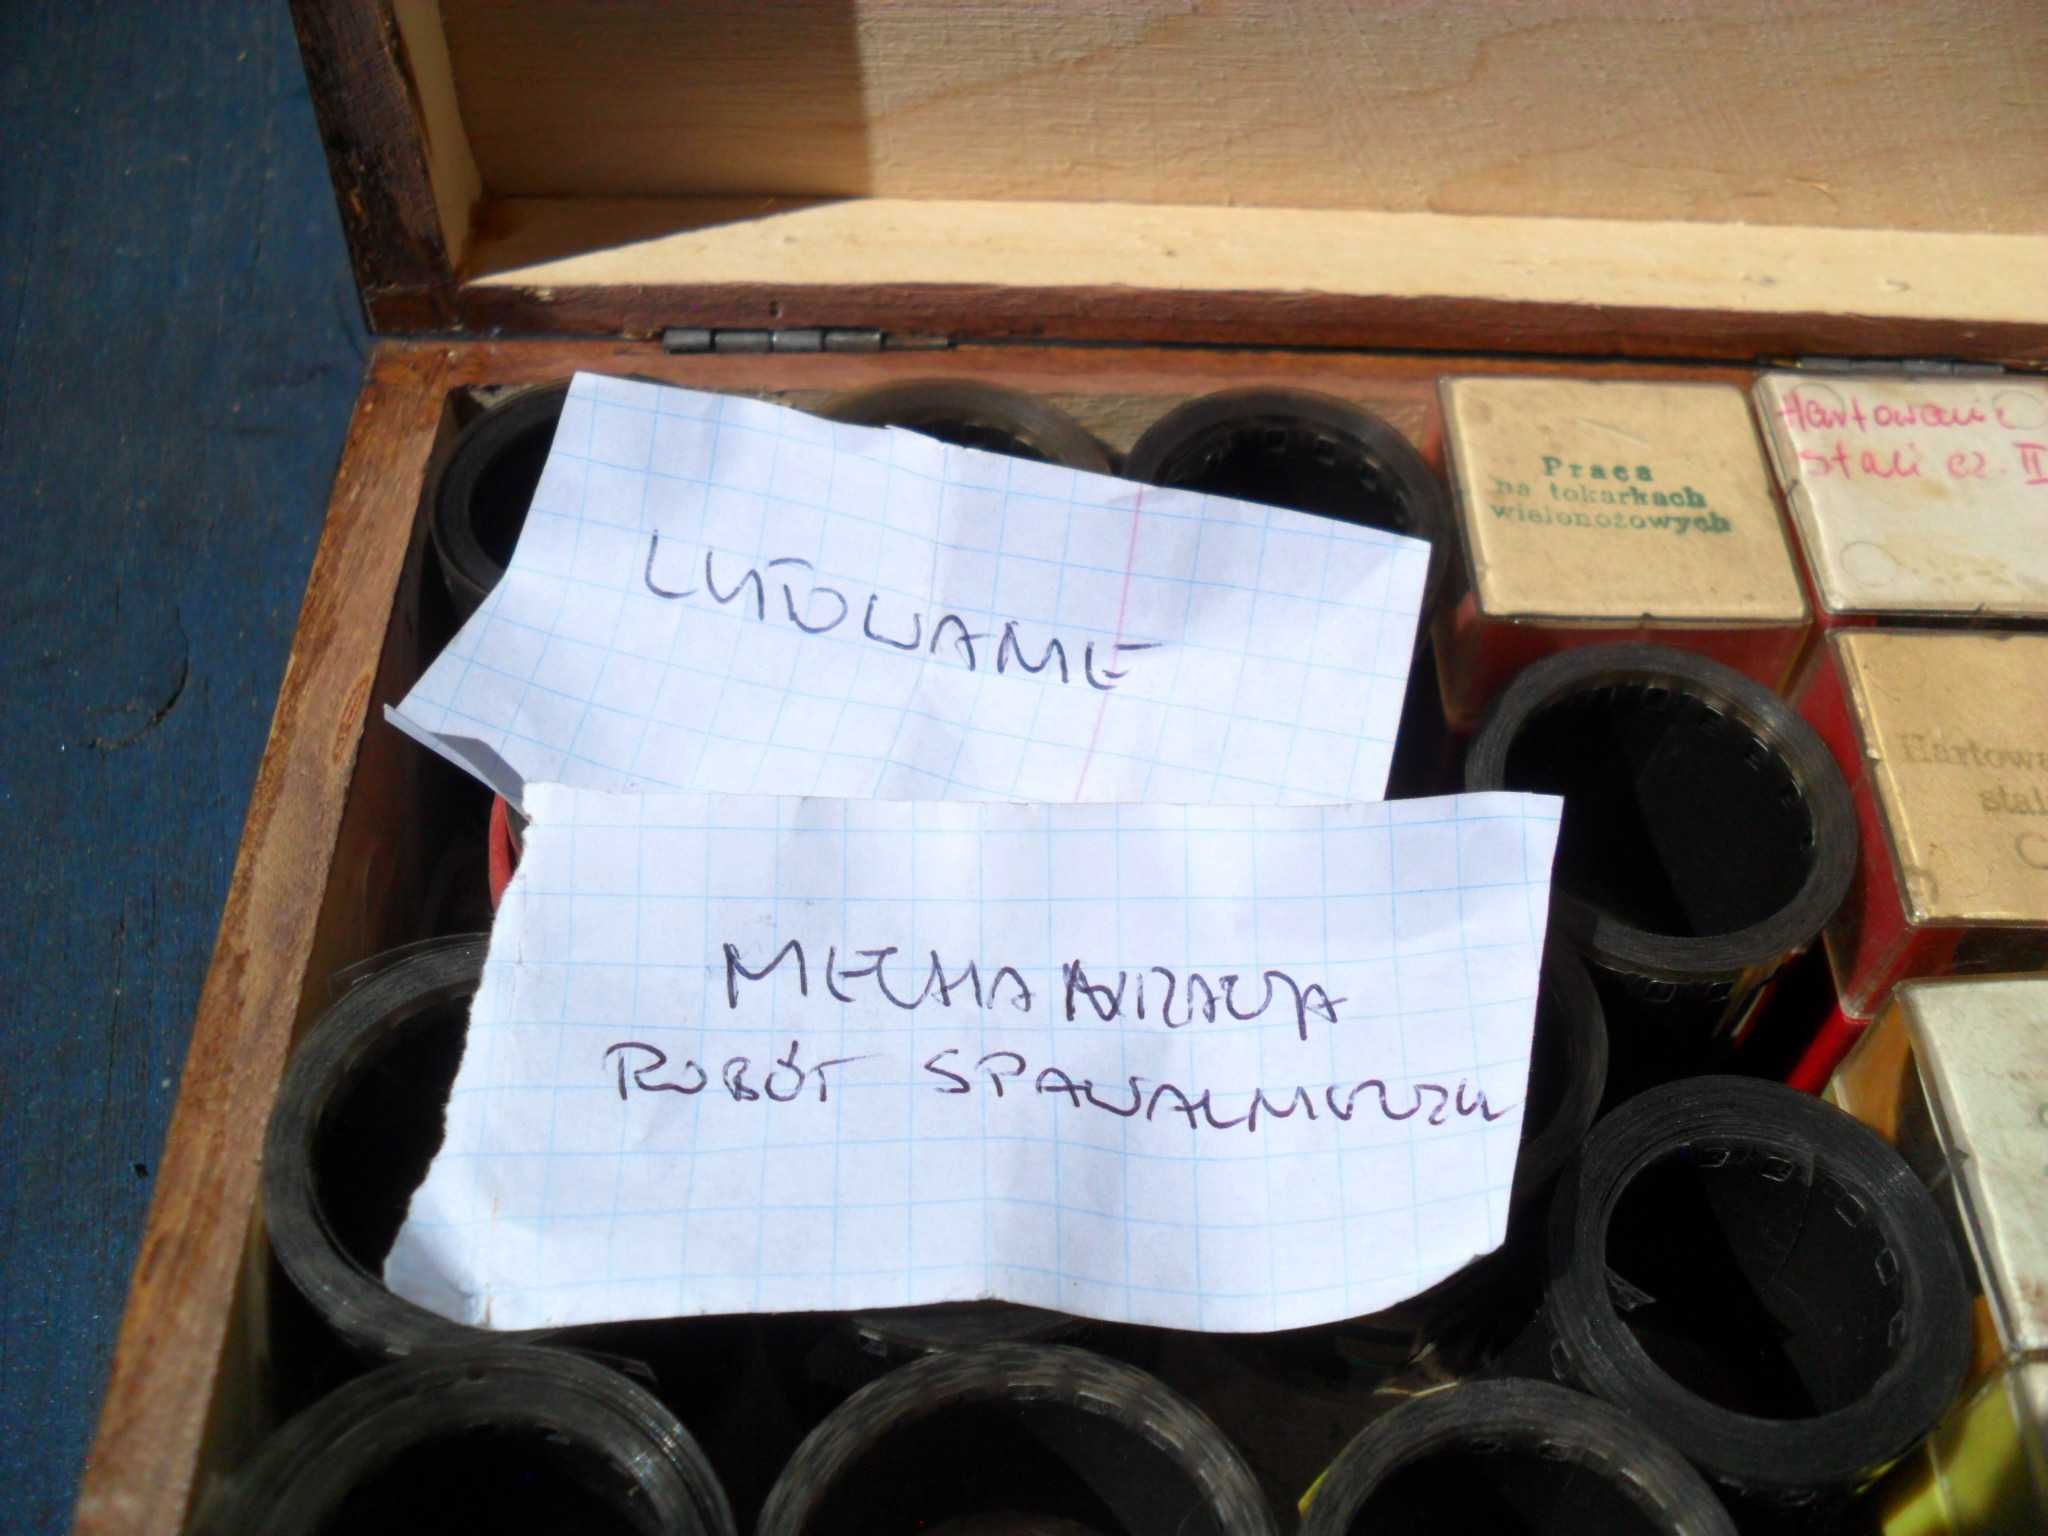 LUTOWANIE
MECHANIZACJA
ROBÓT SPAWALNICZYCH
Praca
na tokarkach
wielonożowych
Hartowanie
stali cz. II
Hartowa
stal
C